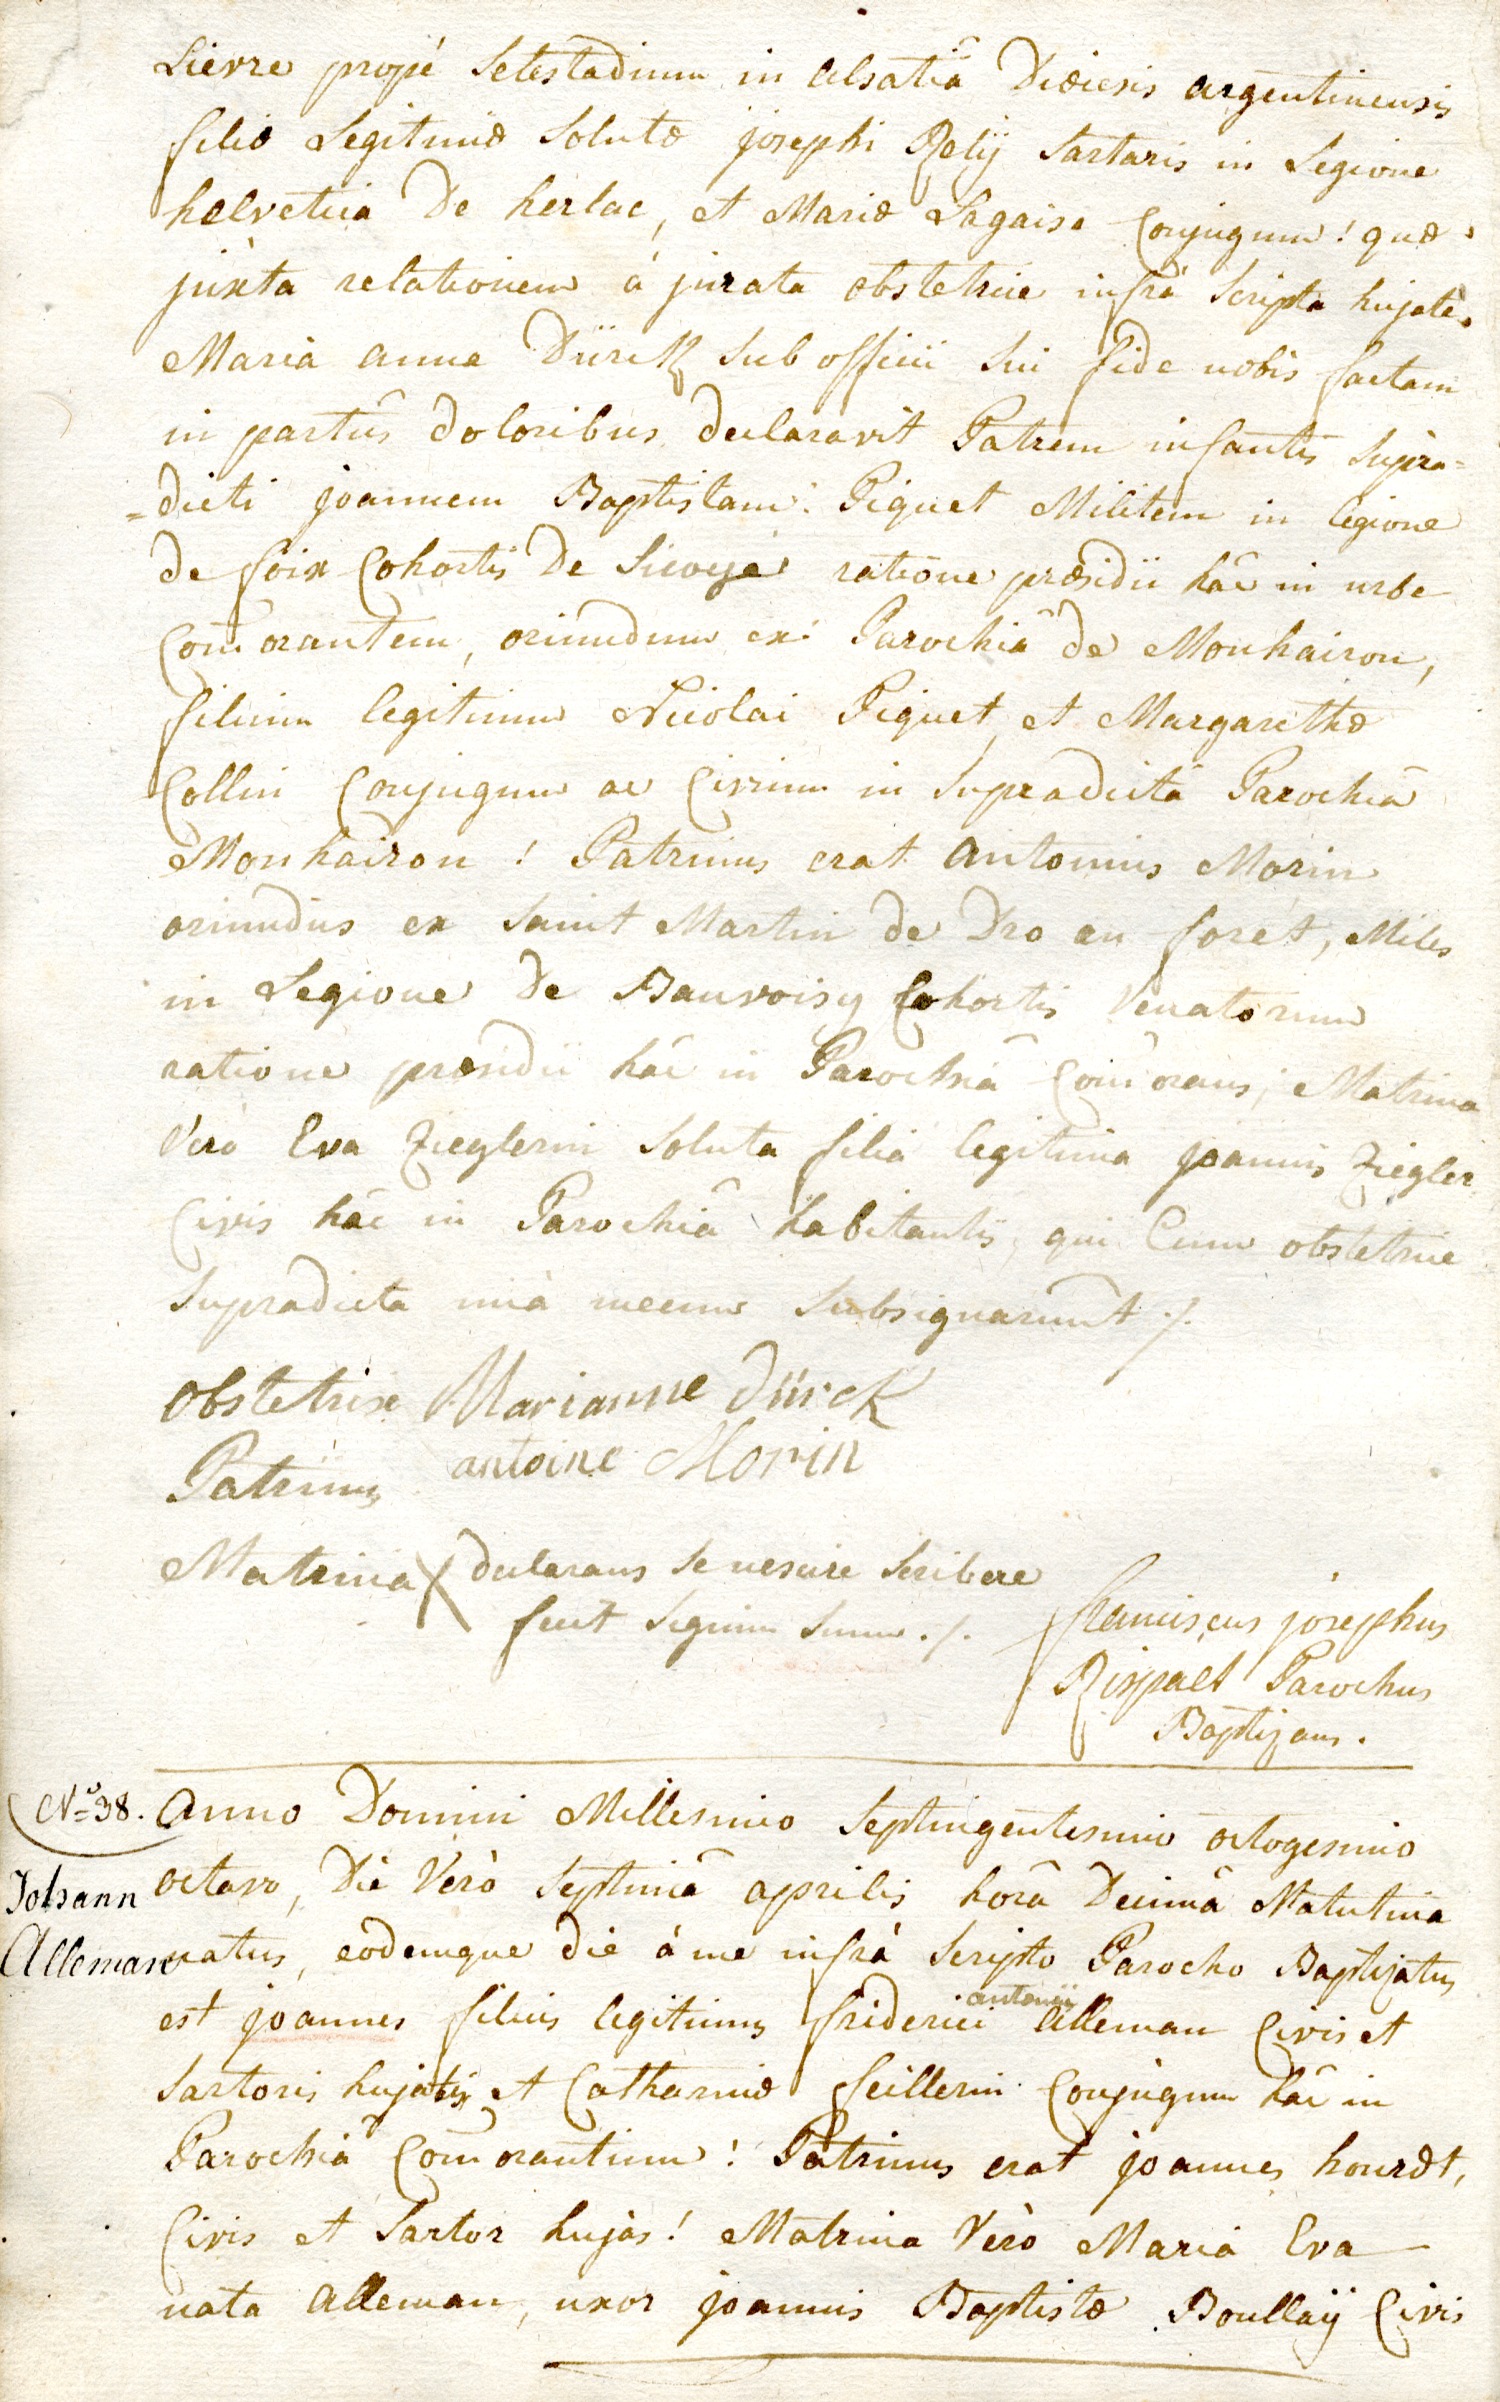 Lievre propé Selestadium in alsatiâ Diœcesis argentinensis
filiæ Legitimæ Solutæ josephi Relÿ Sartoris in Legione
helvetica De herlac, et Mariæ Lagaise Conjugum! quæ
juxta relationem á jurata obstetrice infrà Scripta hujate
Maria anna Dürck sub officii sui fide nobis factam
in partûs doloribus declaravit Patrem infantis supra=
=dicti joannem Baptistam Piquet Militem in legione
de foix Cohortis De ratione præsidii hâc in urbe
Com̃orantem, oriundum ex Parochiâ de Monhairon,
filium legitimum Nicolai Piquet, et Margarethæ
Collin Conjugum ac Civium in supradictâ Parochiâ
Monhairon! Patrinus erat antonius Morin
oriundus ex saint Martin de Dro en forét, Miles
in Legione de Bauvoisy Cohortis Venatorum
ratione præsidii hâc in Parochiâ Com̃orans; Matrina
Verò Eva Zieglerin soluta filia legitima joannis Ziegler
Civis hâc in Parochiâ habitantis, qui Cum obstetrice
supradicta unà mecum subsignarunt ./.
obstetrix Marianne dürck
Patrinus antoine Morin
Matrina X declarans se nescire scribere
fecit signum suum ./.
franciscus josephus
Rispalt Parochus
Baptizans.
No=38. anno Domini Millesimo septingentesimo octogesimo
Johann octavo, Die Verò septimâ aprilis horâ Decimâ Matutina
Alleman natus, eodemque die á me infrà scripto Parocho Baptizatus
antonii
est joannes filius legitimus friderici alleman Civis et
sartoris hujatis et Catharinæ feillerin Conjugum hâc in
Parochiâ Com̃orantium! Patrinus erat joannes hourdt,
Civis et sartor hujàs! Matrina Verò Maria Eva
nata alleman, uxor joannis Baptistæ Boullaÿ Civis